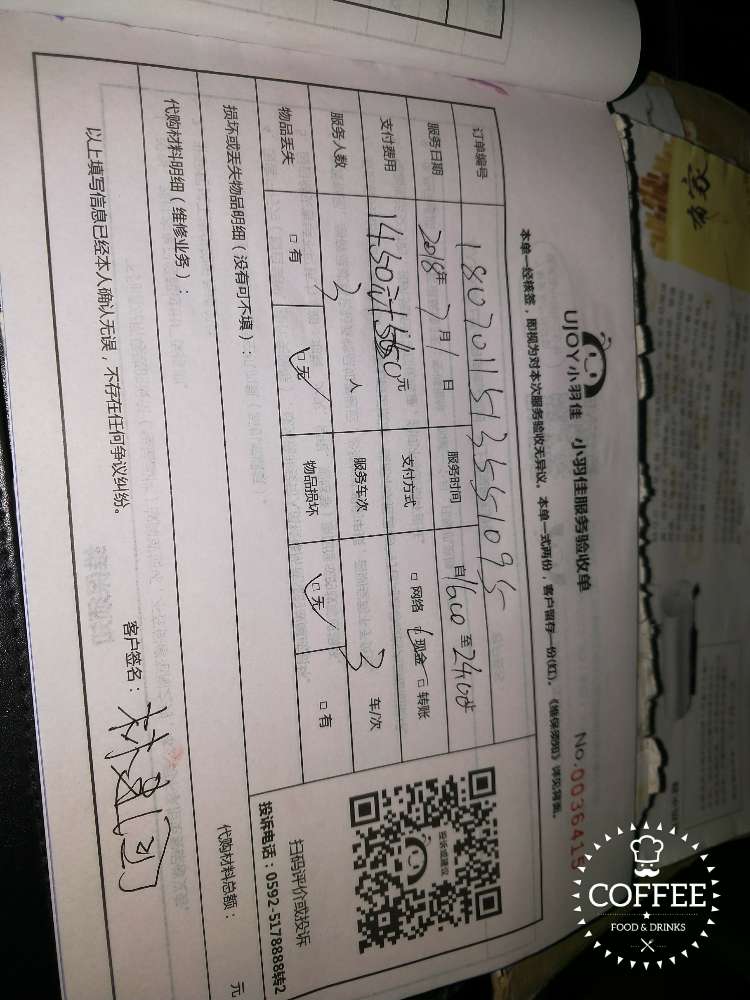 UJOY小羽佳 小羽佳服务验收单
No.0036415
本单一经核签，即视为对本次服务验收无异议。本单一式两份，客户留存一份(红)。《维保须知》详见背面。
订单编号 18070115135551095
服务日期 2018年7月1日 服务时间 自1600至2400
支付费用 1450 元 支付方式 □网络 现金 □转账
服务人数 3人 服务车次 3车/次
物品丢失 □有 □无 物品损坏 □无 □有
损坏或丢失物品明细（没有可不填）：
代购材料明细（维修业务）：
代购材料总额： 元
以上填写信息已经本人确认无误，不存在任何争议纠纷。
客户签名：林
投诉或建议
扫码评价或投诉
投诉电话：0592-5178888转2
COFFEE
FOOD & DRINKS